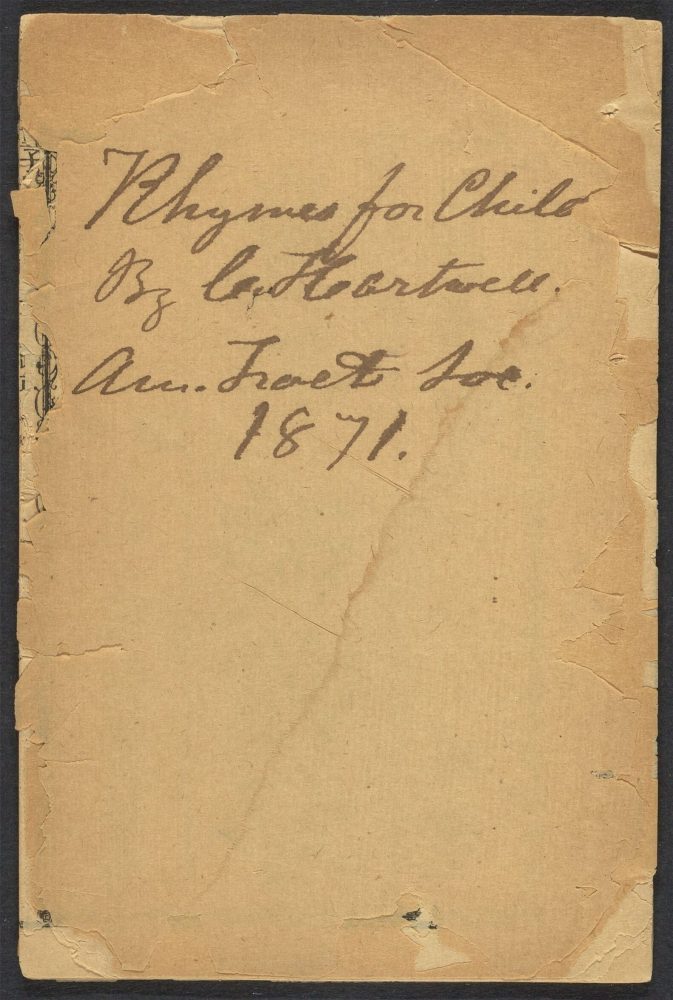 Rhymes for Child
By C. Hartwell.
Am. Tract Soc.
1871.